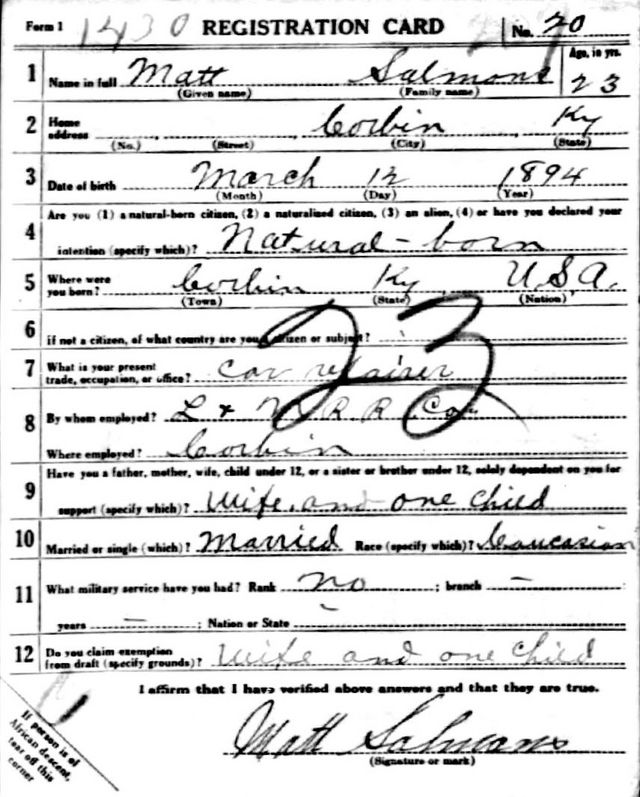 Form 1 1430 REGISTRATION CARD No. 20
1 Name in full Matt Salmons Age, in yrs. 23
(Given name) (Family name)
2 Home address Corbin Ky
(No.) (Street) (City) (State)
3 Date of birth March 12 1894
(Month) (Day) (Year)
Are you (1) a natural-born citizen, (2) a naturalized citizen, (3) an alien, (4) or have you declared your
4 intention (specify which)? Natural-born
5 Where were you born? Corbin Ky U.S.A.
(Town) (State) (Nation)
6 If not a citizen, of what country are you a citizen or subject?
23
7 What is your present trade, occupation, or office? car repairer
8 By whom employed? L & N. R R Co.
Where employed? Corbin
9 Have you a father, mother, wife, child under 12, or a sister or brother under 12, solely dependent on you for
support (specify which)? Wife and one child
10 Married or single (which)? Married Race (specify which)? Caucasian
11 What military service have you had? Rank No ; branch –
years – ; Nation or State –
12 Do you claim exemption from draft (specify grounds)? Wife and one child
I affirm that I have verified above answers and that they are true.
Matt Salmons
(Signature or mark)
If person is of
African descent,
tear off this
corner